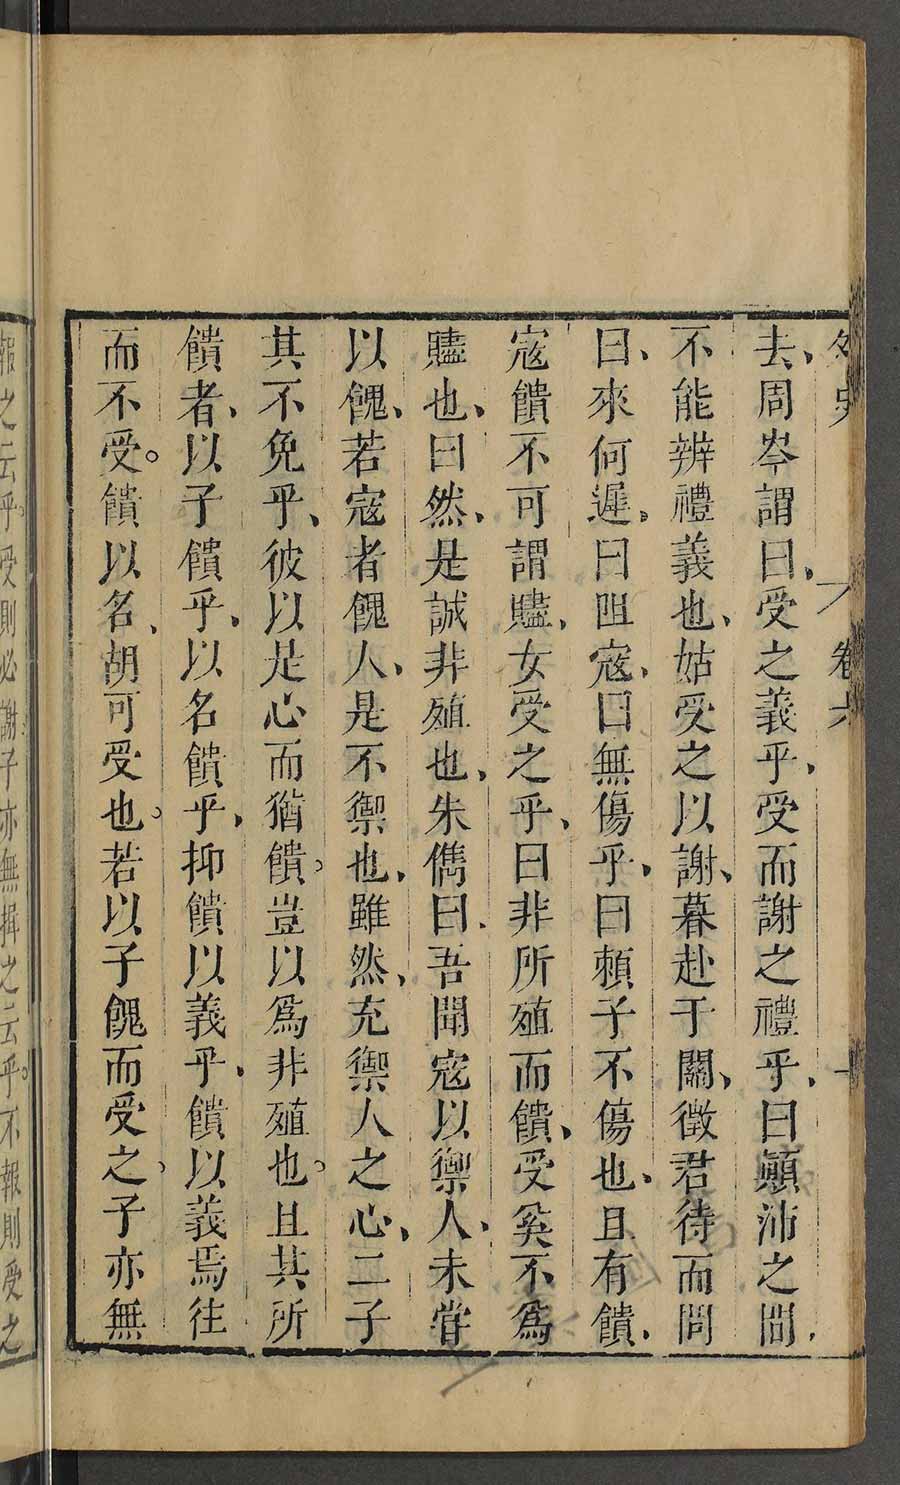 外史 卷六
去、周岑謂曰、受之義乎、受而謝之禮乎、曰顛沛之間、
不能辨禮義也、姑受之以謝、暮赴于關、徵君待而問
曰、來何遲、曰阻寇、曰無傷乎、曰賴子不傷也、且有饋、
寇饋不可謂贐、女受之乎、曰非所殖而饋、受奚不爲
贐也、曰然、是誠非殖也、朱儁曰、吾聞寇以禦人、未甞
以餽、若寇者餽人、是不禦也、雖然、充禦人之心、二子
其不免乎、彼以是心而猶饋。豈以爲非殖也。且其所
饋者、以子饋乎、以名饋乎、抑饋以義乎、饋以義焉往
而不受。饋以名、胡可受也。若以子餽而受之、子亦無
報之云乎。受則必謝子亦無揖之云乎。不報則受之